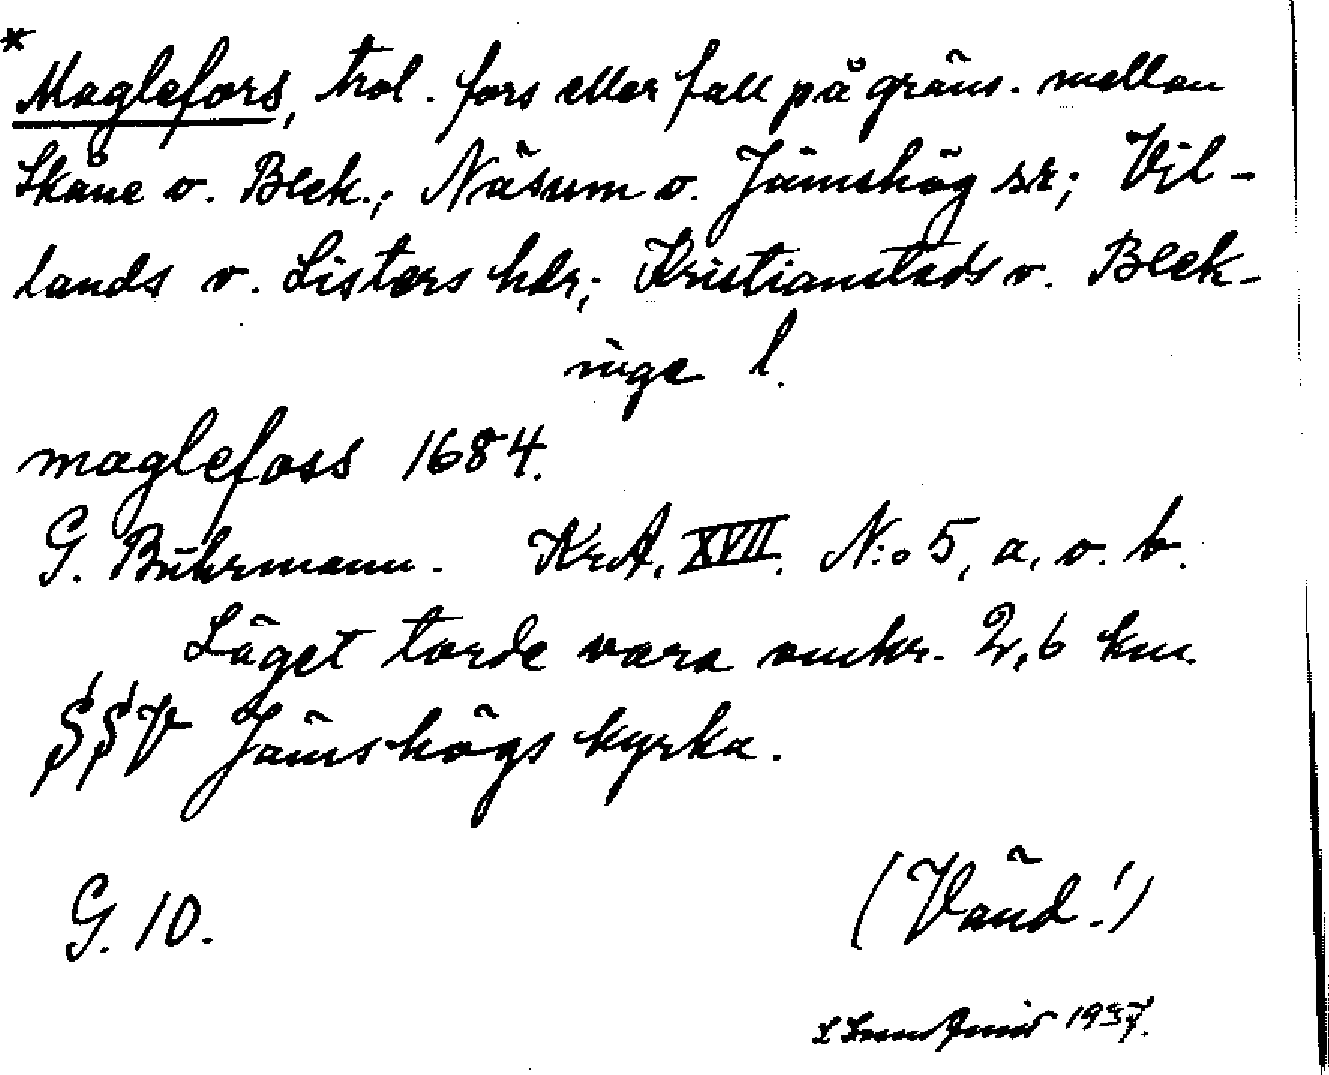 *Maglefors, trol. fors eller fall på gräns. mellan
Skåne o. Blek.; Näsum o. Jämshög sr; Vil-
lands o. Listers hdr; Kristianstads o. Blek-
inge l.
maglefoss 1684.
G. Buhrmann. KrA, XVII. N:o 5, a, o. b.
Läget torde vara omkr. 2,6 km
SSV Jämshögs kyrka.
G. 10.
(Vänd!)
1937.